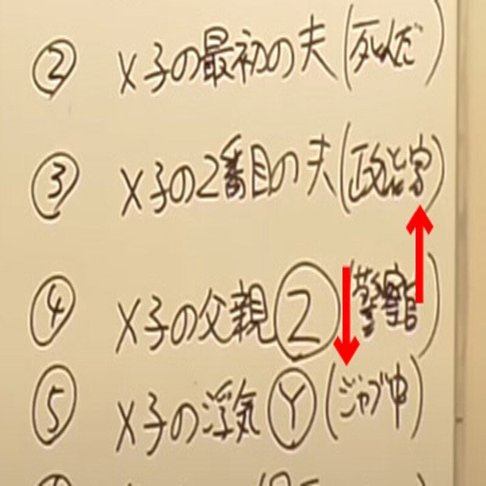 ② X子の最初の夫(死んだ)
③ X子の2番目の夫(政治家)
④ X子の父親Ⓩ(警察官)
⑤ X子の浮気Ⓨ(ジャブ中)